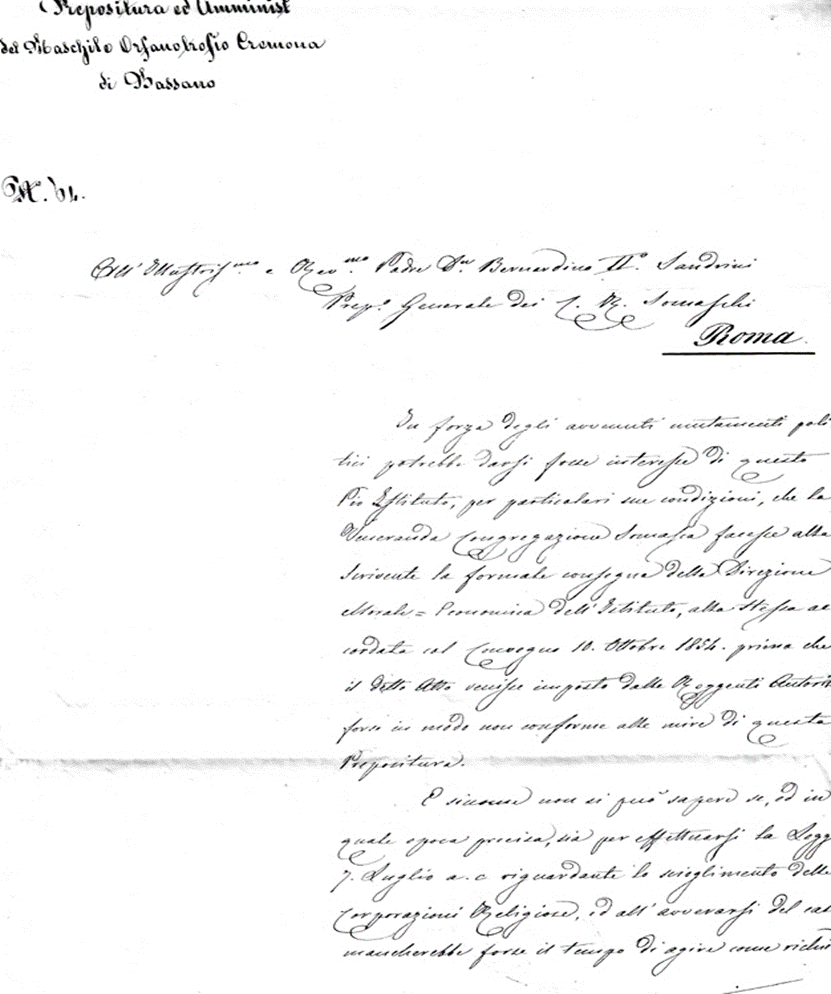 Prepositura ed Amminist
del Maschile Orfanotrofio Cremona
di Bassano
N. 61.
All' Illustriss.mo e Rev.mo Padre Dn Bernardino II.o Sandrini
Prep.o Generale dei C. R. Somaschi
Roma.
In forza degli avvenuti mutamenti poli
tici potrebbe darsi fosse interesse di questo
Pio Istituto, per particolari sue condizioni, che la
Veneranda Congregazione Somasca facesse alla
scrivente la formale consegna della Direzione
Morale = Economica dell' Istituto, alla stessa ac
cordata col Convegno 10. Ottobre 1854. prima che
il detto Atto venisse imposto dalle Reggenti Autorit
forse in modo non conforme alle mire di questa
Prepositura.
E siccome non si può sapere se, ed in
quale epoca precisa, sia per effettuarsi la Legg
7. Luglio a. c riguardante lo scioglimento delle
Corporazioni Religiose, ed all' avverarsi del cas
mancherebbe forse il tempo di agire come richi